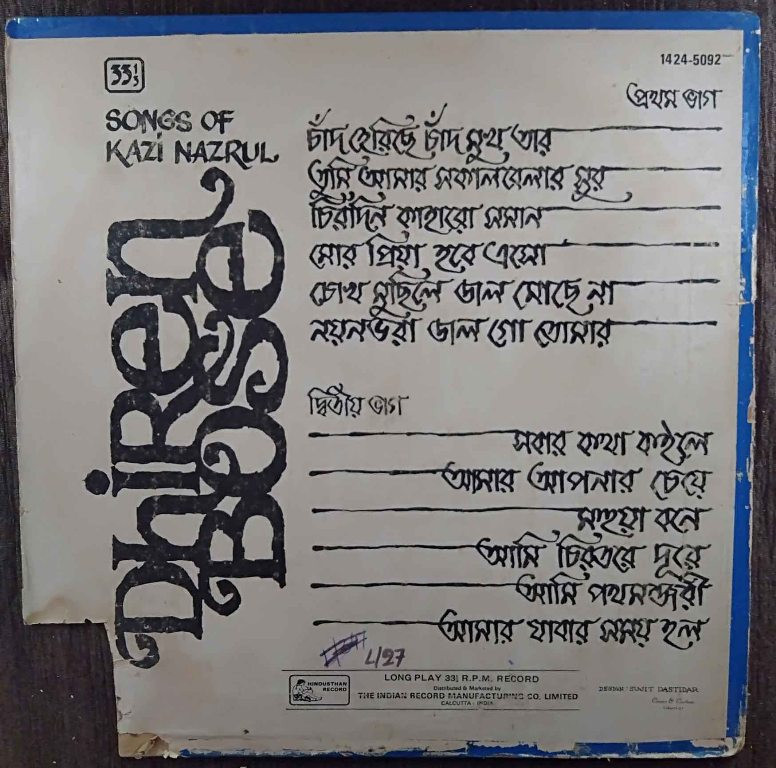 33⅓
1424-5092
SONGS OF
KAZI NAZRUL
Dhiren
Bose
প্রথম ভাগ
চাঁদ হেরিছে চাঁদ মুখ তার
তুমি আমার সকালবেলার সুর
চিরদিন কাহারো সমান
মোর প্রিয়া হবে এসো
চোখ মুছিলে জল মোছে না
নয়নভরা জল গো তোমার
দ্বিতীয় ভাগ
সবার কথা কইলে
আমার আপনার চেয়ে
মহুয়া বনে
আমি চিরতরে দূরে
আমি পথমঞ্জরী
আমার যাবার সময় হল
L/27
HINDUSTHAN
RECORD
LONG PLAY 33⅓ R.P.M. RECORD
Distributed & Marketed by
THE INDIAN RECORD MANUFACTURING CO. LIMITED
CALCUTTA - INDIA
DESIGN: SUNIT DASTIDAR